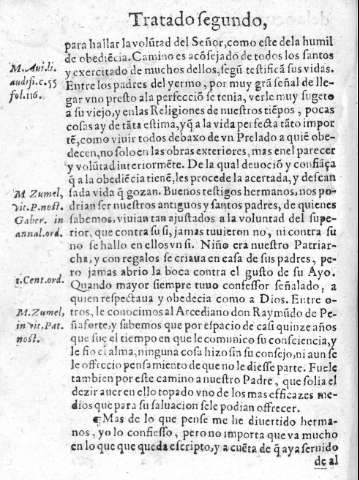 Tratado segundo,
para hallar la volũtad del Señor, como este dela humil
de obediẽcia. Camino es acõsejado de todos los santos
y exercitado de muchos dellos, segũ testificã sus vidas.
Entre los padres del yermo, por muy grã señal de lle-
gar vno presto ala perfecciõ se tenia, verle muy sugeto
a su viejo, y en las Religiones de nuestros tiẽpos, pocas
cosas ay de tãta estima, yq̃ a la vida perfecta tãto impor
tẽ, como viuir todos debaxo de vn Prelado a quiẽ obe-
decen, no solo en las obras exteriores, mas en el parecer
y volũtad interiormẽte. De la qual deuociõ y confiãça
q̃ a la obediẽcia tienẽ, les procede la acertada, y descan
sada vida q̃ gozan. Buenos testigos hermanos, nos po-
drian ser nuestros antiguos y santos padres, de quienes
sabemos, viuian tan ajustados a la voluntad del supe-
rior, que contra su si, jamas tuuieron no, ni contra su
no se hallo en ellos vn si. Niño era nuestro Patriar-
cha, y con regalos se criaua en casa de sus padres, pe-
ro jamas abrio la boca contra el gusto de su Ayo.
Quando mayor siempre tuuo confessor señalado, a
quien respectaua y obedecia como a Dios. Entre o-
tros, le conocimos al Arcediano don Raymũdo de Pe-
ñaforte, y sabemos que por espacio de casi quinze años
que fue el tiempo en que le comunico su consciencia, y
le fio el alma, ninguna cosa hizo sin su consejo, ni aun se
le offrecio pensamiento de que no le diesse parte. Fuele
tambien por este camino a nuestro Padre, que solia el
dezir auer en ello topado vno de los mas efficazes me-
dios que para su saluacion se le podian offrecer.
¶ Mas de lo que pense me he diuertido herma-
nos, yo lo confiesso, pero no importa que va mucho
en lo que queda escripto, y a cuẽta de q̃ aya seruido
de al
M. Aui. li.
audi fi. c. 55
fol. 116.
M. Zumel,
vit. P. nost.
Gaber. in
annal. ord.
1. Cent. ord.
M. Zumel,
in vit. Pat.
nost.